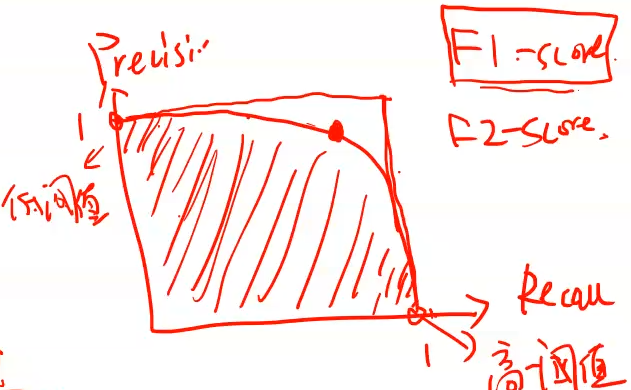 Precisi
F1-score
F2-score.
1
低阈值
Recall
1
高阈值